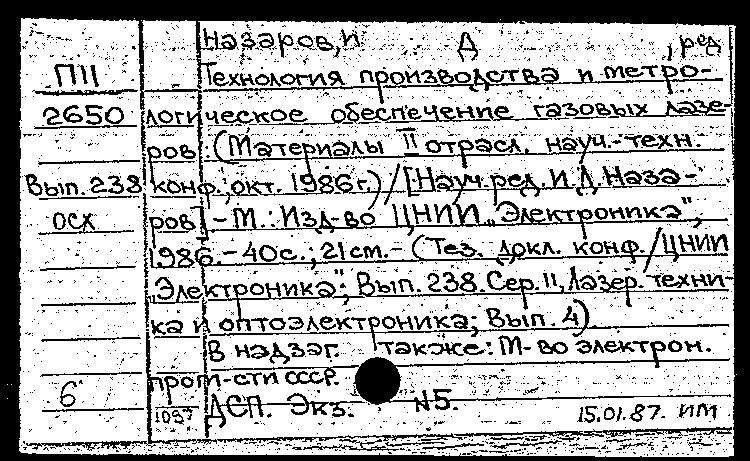 Назаров, И Д , ред
П11 Технология производства и метро-
2650 логическое обеспечение газовых лазе-
ров: (Материалы II отрасл. науч.-техн.
Вып. 238 конф., окт. 1986г.) / [Науч. ред. И.Д. Наза-
осх ров]. - М.: Изд-во ЦНИИ "Электроника",
1986. - 40с.; 21см. - (Тез. докл. конф. / ЦНИИ
"Электроника"; Вып. 238. Сер. 11, Лазер. техни-
ка и оптоэлектроника; Вып. 4)
В надзаг. также: М-во электрон.
6 пром-сти СССР.
1097 ДСП. Экз. №5.
15.01.87. ИМ